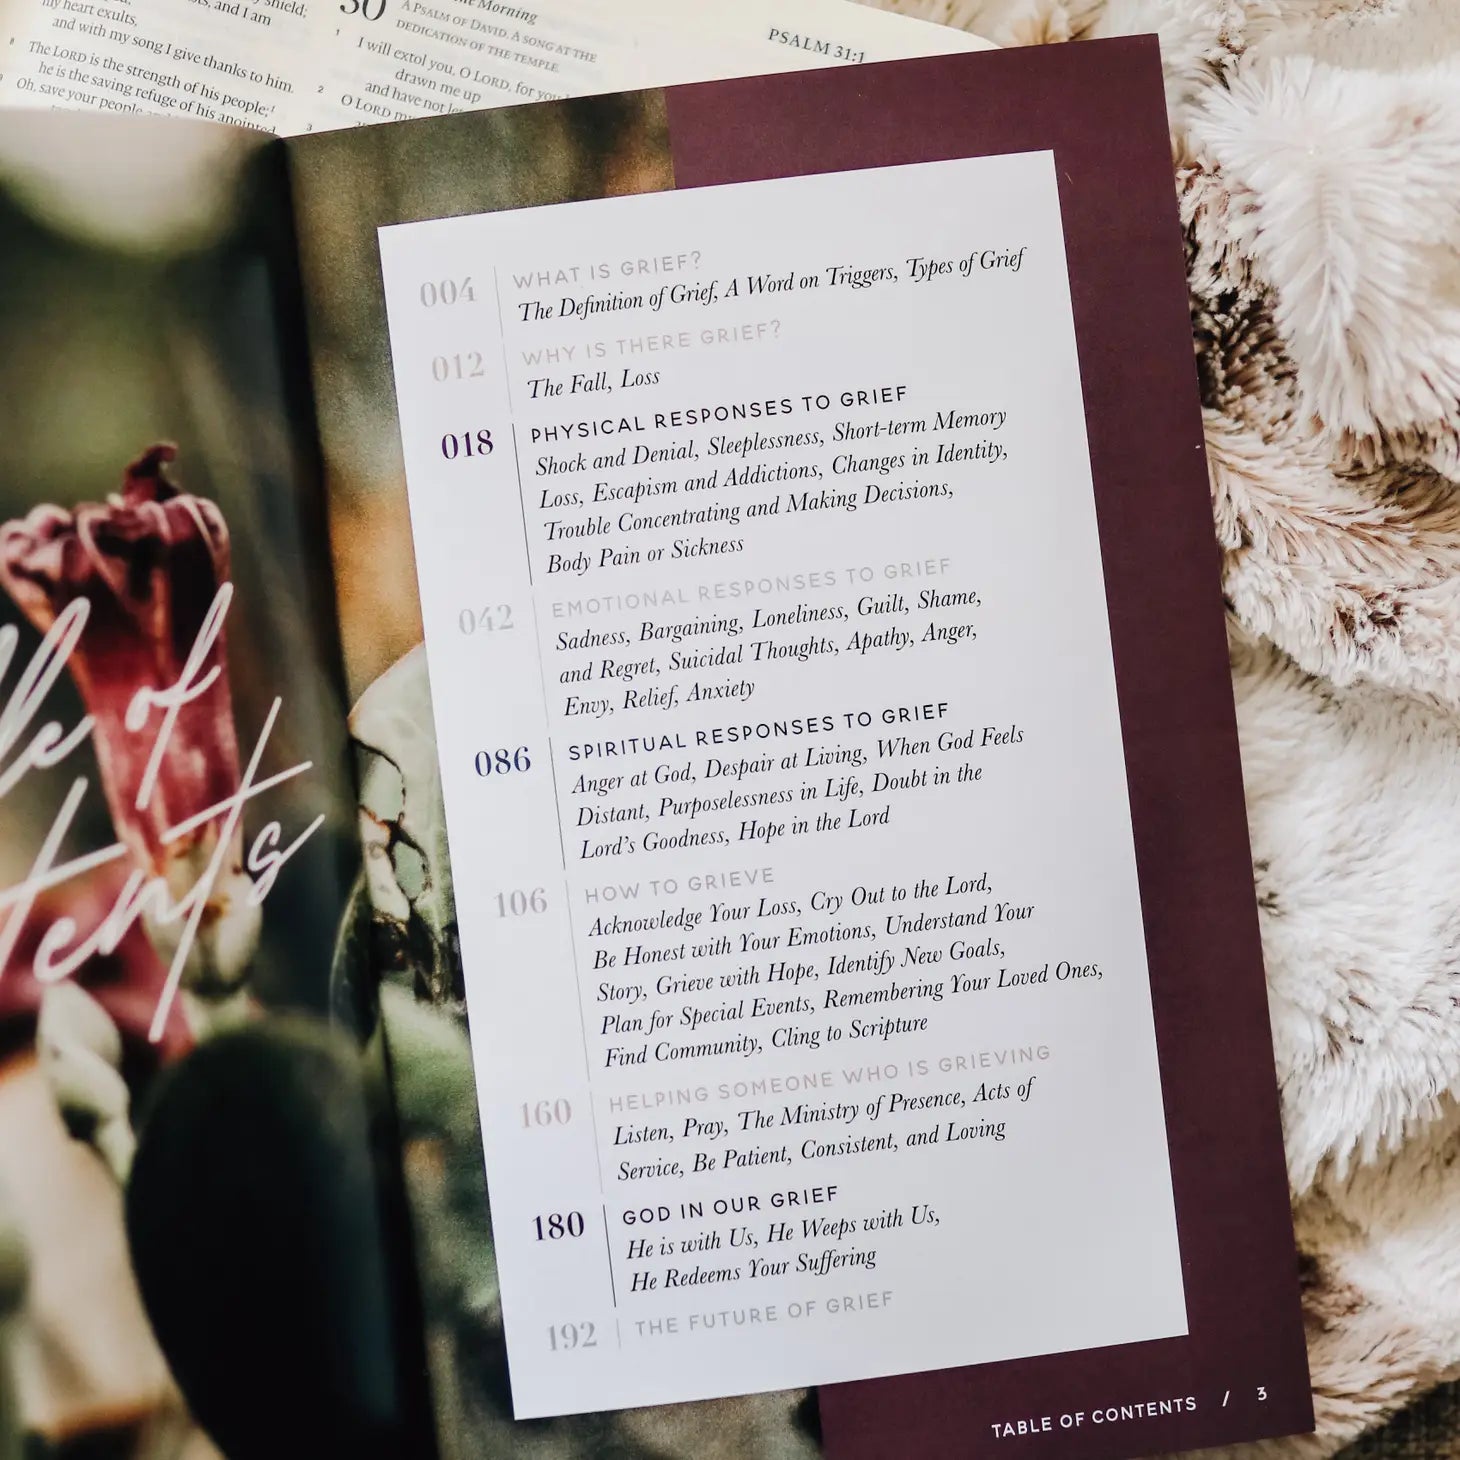 my heart exults,
and with my song I give thanks to him.
8 The LORD is the strength of his people;
he is the saving refuge of his anointed
Oh, save your people
shield;
and I am
30
Morning
A PSALM OF DAVID. A SONG AT THE
DEDICATION OF THE TEMPLE.
1 I will extol you, O LORD, for you
drawn me up
and have not let
2 O LORD my
3
PSALM 31:1
of
004 WHAT IS GRIEF?
The Definition of Grief, A Word on Triggers, Types of Grief
012 WHY IS THERE GRIEF?
The Fall, Loss
018 PHYSICAL RESPONSES TO GRIEF
Shock and Denial, Sleeplessness, Short-term Memory
Loss, Escapism and Addictions, Changes in Identity,
Trouble Concentrating and Making Decisions,
Body Pain or Sickness
042 EMOTIONAL RESPONSES TO GRIEF
Sadness, Bargaining, Loneliness, Guilt, Shame,
and Regret, Suicidal Thoughts, Apathy, Anger,
Envy, Relief, Anxiety
086 SPIRITUAL RESPONSES TO GRIEF
Anger at God, Despair at Living, When God Feels
Distant, Purposelessness in Life, Doubt in the
Lord's Goodness, Hope in the Lord
106 HOW TO GRIEVE
Acknowledge Your Loss, Cry Out to the Lord,
Be Honest with Your Emotions, Understand Your
Story, Grieve with Hope, Identify New Goals,
Plan for Special Events, Remembering Your Loved Ones,
Find Community, Cling to Scripture
160 HELPING SOMEONE WHO IS GRIEVING
Listen, Pray, The Ministry of Presence, Acts of
Service, Be Patient, Consistent, and Loving
180 GOD IN OUR GRIEF
He is with Us, He Weeps with Us,
He Redeems Your Suffering
192 THE FUTURE OF GRIEF
TABLE OF CONTENTS / 3